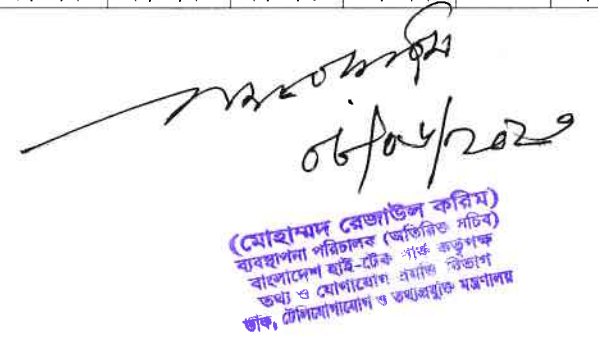 (মোহাম্মদ রেজাউল করিম)
ব্যবস্থাপনা পরিচালক (অতিরিক্ত সচিব)
বাংলাদেশ হাই-টেক পার্ক কর্তৃপক্ষ
তথ্য ও যোগাযোগ প্রযুক্তি বিভাগ
ডাক, টেলিযোগাযোগ ও তথ্যপ্রযুক্তি মন্ত্রণালয়